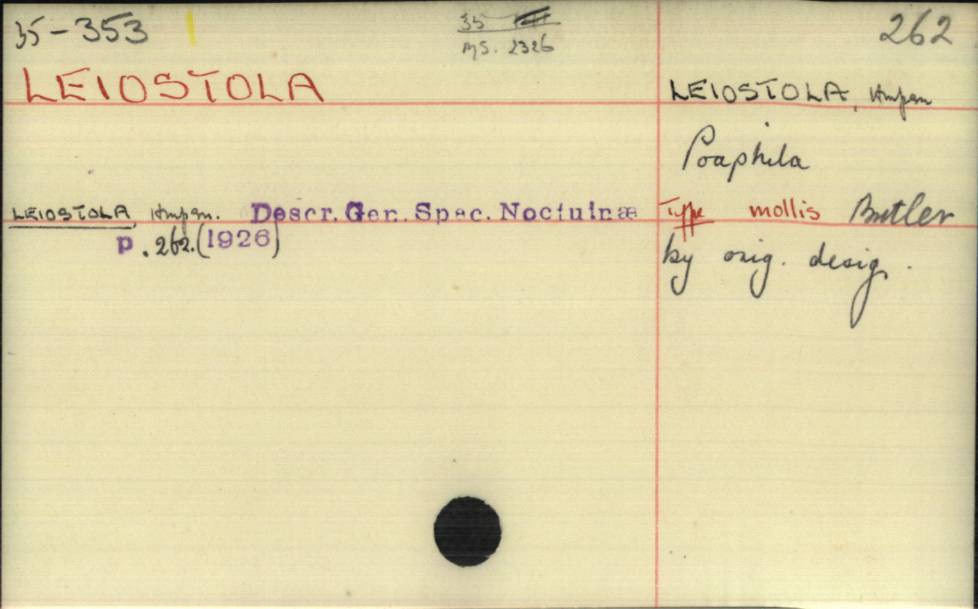 35-353
35
MS. 2326
262
LEIOSTOLA
LEIOSTOLA, Hmpsn
Poaphila
LEIOSTOLA Hmpsn. Descr. Gen. Spec. Noctuinæ
p. 262. (1926)
Type mollis Butler
by orig. desig.